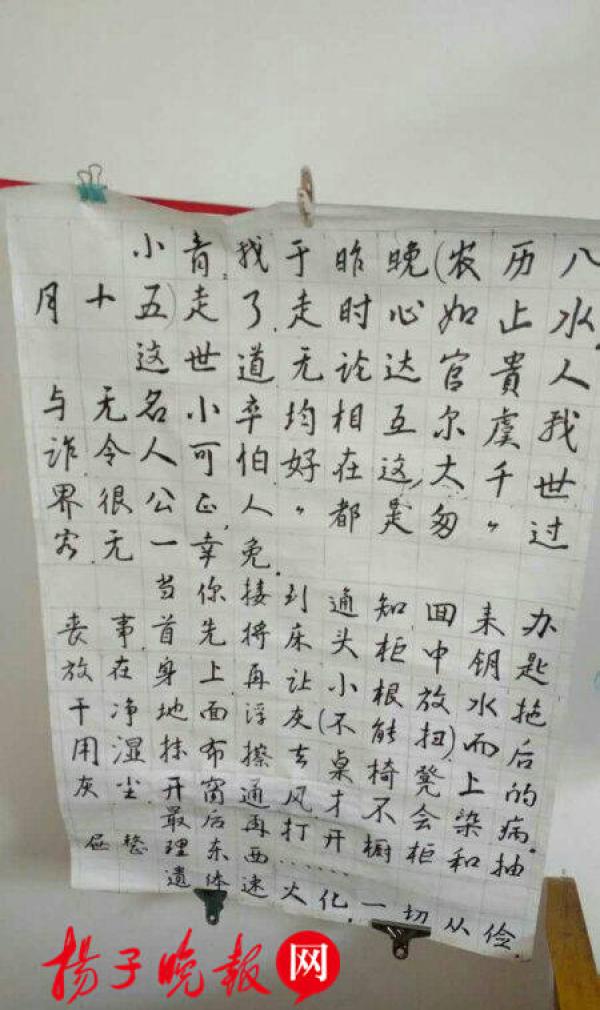 小青,我于昨晚(农历八
月十五)走了,走时心如止水.
这世道无论达官贵人
与无名小卒均相互尔虞我
诈.令人可怕.好在这,大千世
界很公正,人〃都是匆〃过
客.无一幸免.
当你接到通知回来办
丧事,首先将床头柜中钥匙
放在身上,再让小根放水拖
干净地面浮灰(不能扭)而后
用湿抹布擦去桌椅凳上的
灰尘.开窗通风才不会染病.
最后再打开橱柜和抽
屉整理东西……
遗体速火化.一切从俭.
扬子晚报网